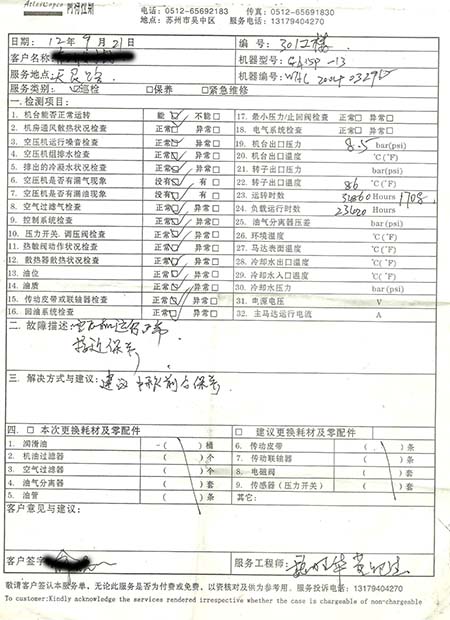 Atlas Copco 阿特拉斯 电话：0512-65692183 传真：0512-65691830
地点：苏州市吴中区 服务电话：13179404270
日期：12年9月21日 编号：301工楼
客户名称： 机器型号：GA15P-13
服务地点： 机器编号：
服务类别：☑巡检 □保养 □紧急维修
一.检测项目：
1. 机台能否正常运转 能□ 不能□ 17. 最小压力/止回阀检查 正常□ 异常□
2. 机房通风散热状况检查 正常□ 异常□ 18. 电气系统检查 正常□ 异常□
3. 空压机运行噪音检查 正常□ 异常□ 19. 机台出口压力 8.5 bar(psi)
4. 空压机组排水检查 正常□ 异常□ 20. 机台出口温度 ℃(℉)
5. 排出的冷凝水状况检查 正常□ 异常□ 21. 转子出口压力 bar(psi)
6. 空压机是否有漏气现象 没有□ 有□ 22. 转子出口温度 86 ℃(℉)
7. 空压机是否有漏油现象 没有□ 有□ 23. 运转时数 Hours 1708
8. 空气过滤气检查 正常□ 异常□ 24. 负载运行时数 23620 Hours
9. 控制系统检查 正常□ 异常□ 25. 油气分离器压差 bar(psi)
10. 压力开关．调压阀检查 正常□ 异常□ 26. 环境湿度 ℃(℉)
11. 热敏阀动作状况检查 正常□ 异常□ 27. 马达表面温度 ℃(℉)
12. 散热器散热状况检查 正常□ 异常□ 28. 冷却水出口温度 ℃(℉)
13. 油位 正常□ 异常□ 29. 冷却水入口温度 ℃(℉)
14. 油质 正常□ 异常□ 30. 冷却水压力 bar(psi)
15. 传动皮带或联轴器检查 正常□ 异常□ 31. 电源电压 V
16. 回油系统检查 正常□ 异常□ 32. 主马达运行电流 A
二. 故障描述：空压机运行正常
接近保养
三. 解决方式与建议：建议
保养.
四. □ 本次更换耗材及零配件 □ 建议更换耗材及零配件
1. 润滑油 -( )桶 6. 传动皮带 ( )条
2. 机油过滤器 ( )个 7. 传动联轴器 ( )条
3. 空气过滤器 ( )个 8. 电磁阀 ( )套
4. 油气分离器 ( )套 9. 传感器（压力开关） ( )套
5. 油管 ( )条 其它：
客户意见与建议：
客户签字 服务工程师：
敬请客户签认本服务单，无论此服务是否为付费或免费，以资核对及供为参考用。服务投诉电话：13179404270
To customer:Kindly acknowledge the services rendered irrespective whether the case is chargeable of non-chargeable